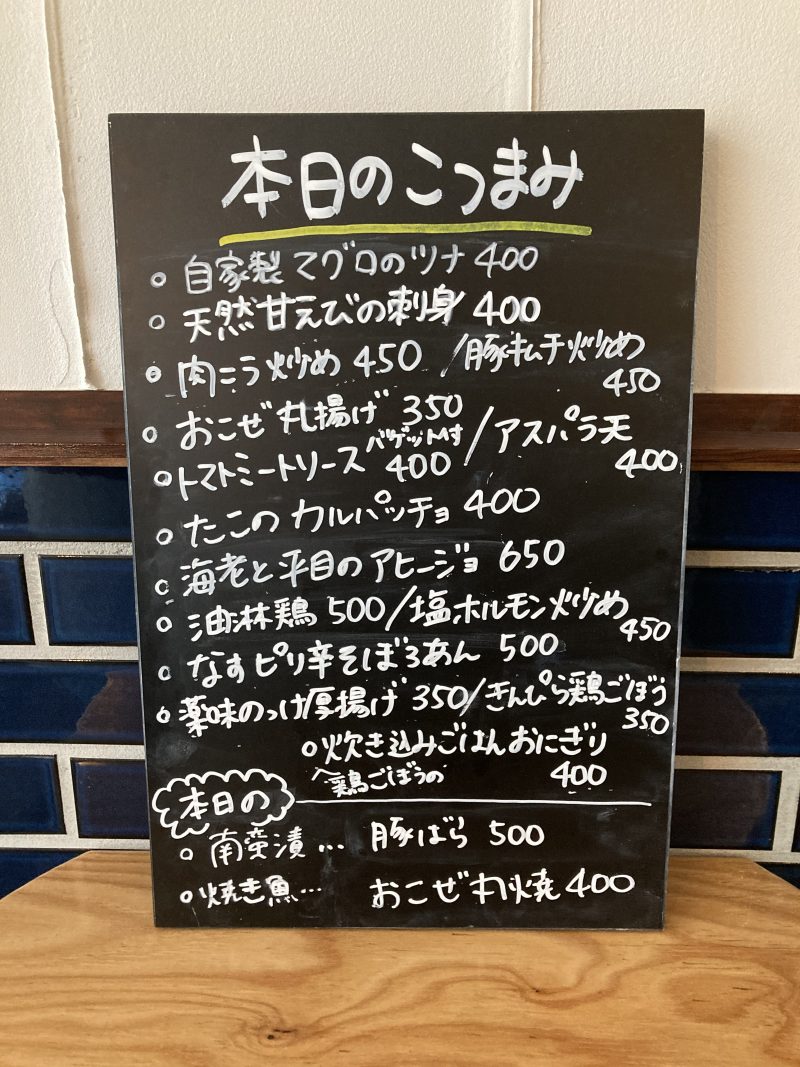 本日のこつまみ
○自家製マグロのツナ 400
○天然甘えびの刺身 400
○肉ニラ炒め 450 /豚キムチ炒め 450
○おこぜ丸揚げ 350
○トマトミートソース バゲット付 400 /アスパラ天 400
○たこのカルパッチョ 400
○海老と平目のアヒージョ 650
○油淋鶏 500/塩ホルモン炒め 450
○なすピリ辛そぼろあん 500
○薬味のっけ厚揚げ 350/きんぴら鶏ごぼう 350
○炊き込みごはんおにぎり
鶏ごぼうの 400
本日の
○南蛮漬… 豚ばら 500
○焼き魚… おこぜ丸焼 400